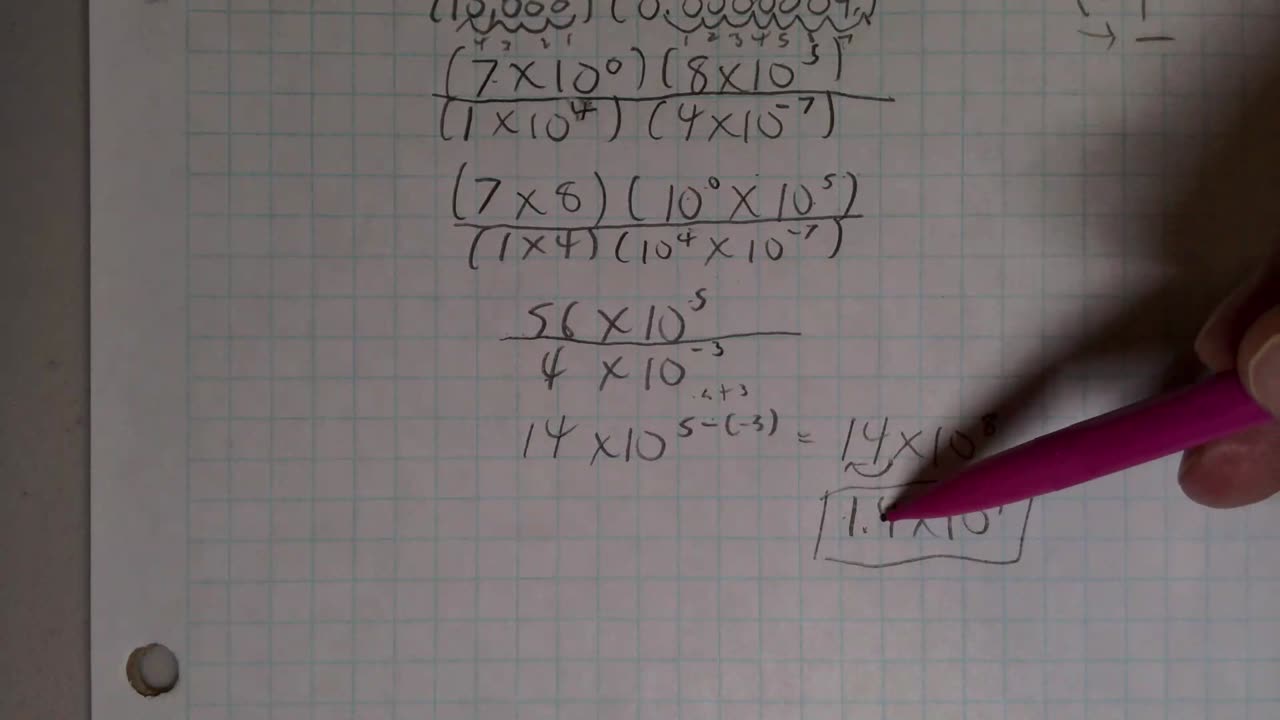 (10,000)(0.0000004)
4 3 2 1 1 2 3 4 5 6 7
(7×10⁰)(8×10⁵)
(1×10⁴)(4×10⁻⁷)
(7×8)(10⁰×10⁵)
(1×4)(10⁴×10⁻⁷)
56×10⁵
4×10⁻³
14×10⁵⁻⁽⁻³⁾ = 14×10⁸
1.4×10